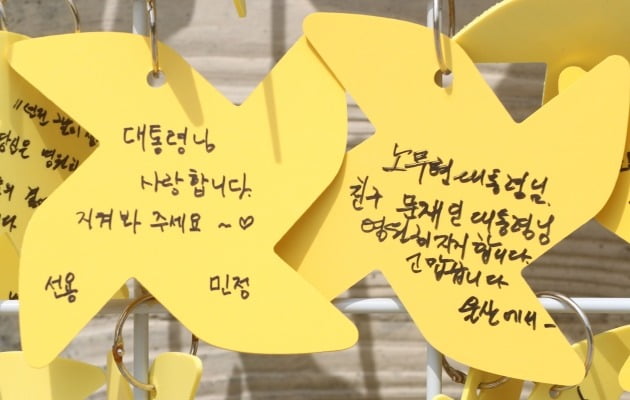 대통령님
사랑합니다.
지켜봐 주세요 ~♡
선용 민정
노무현 대통령님.
친구 문재인 대통령님
영원히 지지합니다.
고맙습니다
울산에서-